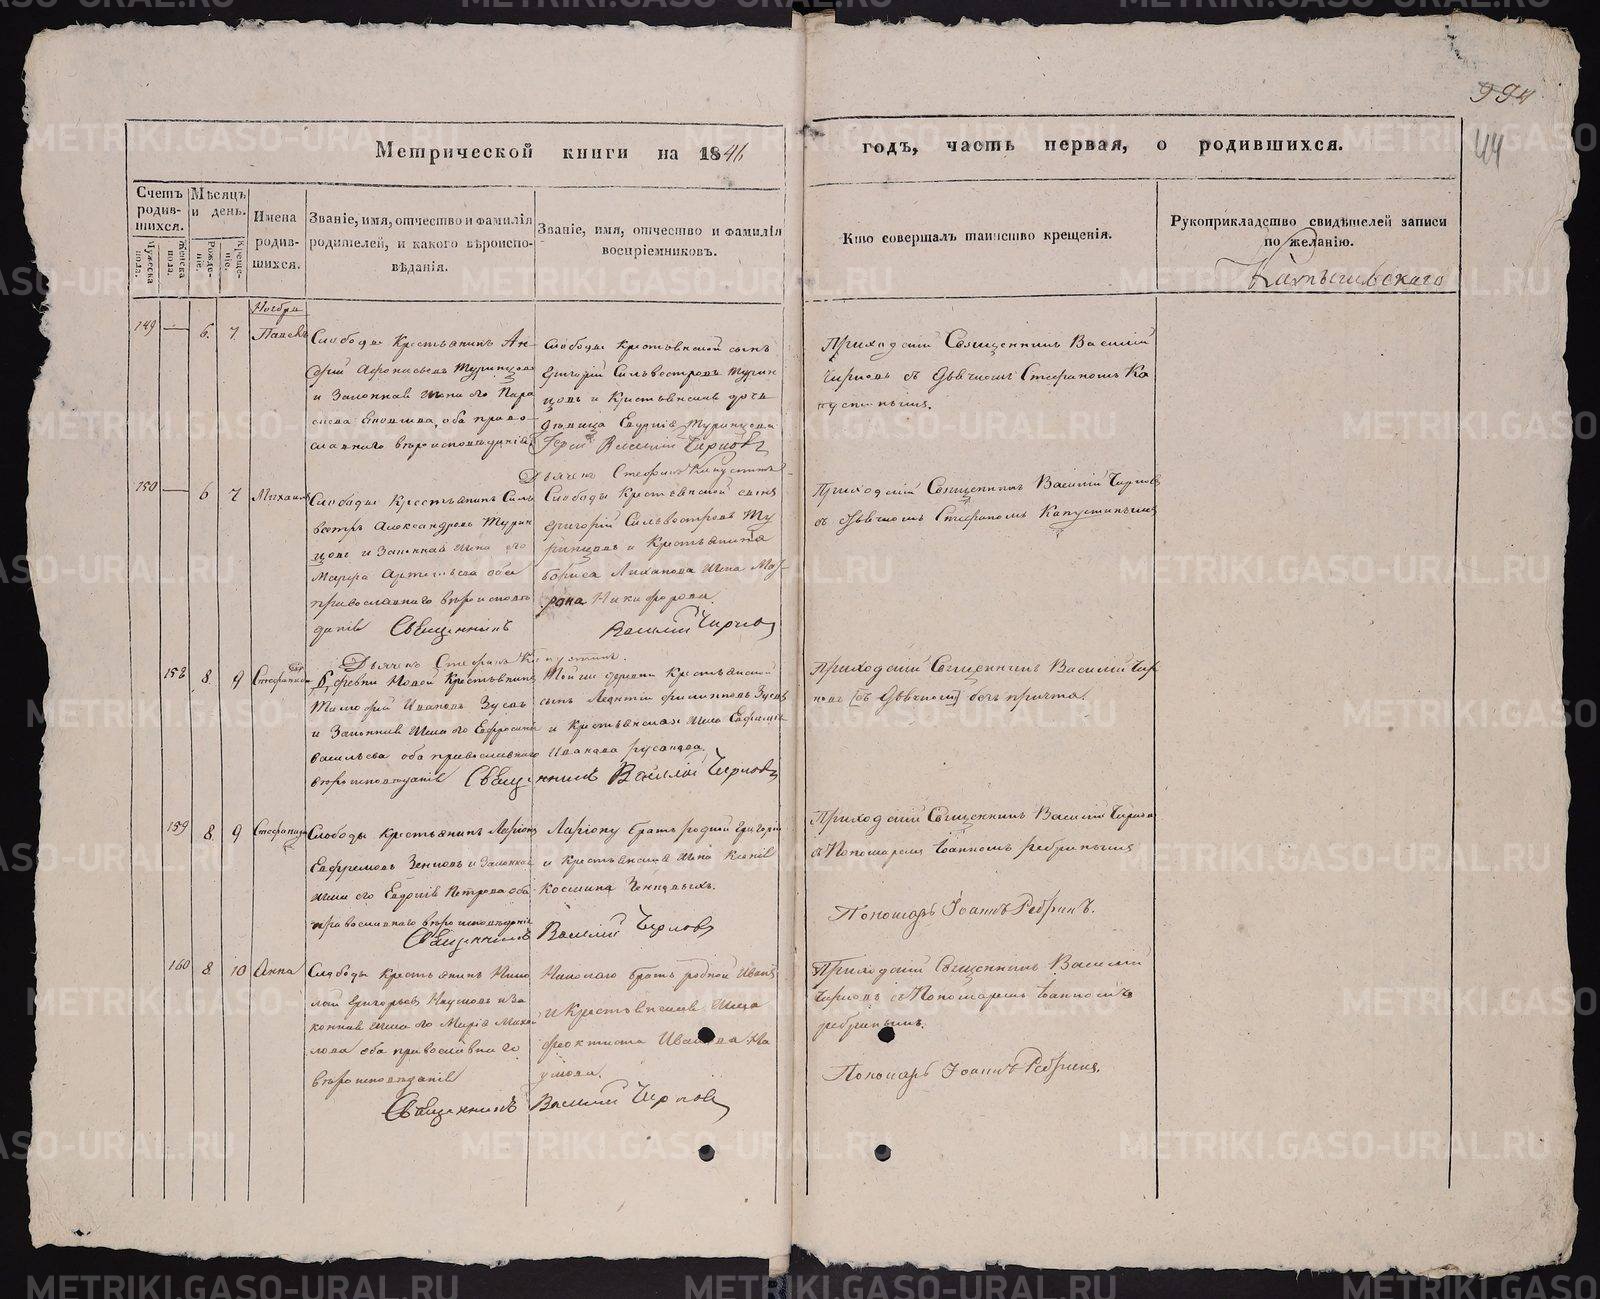 994
44
Метрической книги на 1846
годъ, часть первая, о родившихся.
Счетъ родив-шихся.
Мужеска пола.
Женска пола.
Мѣсяцъ и день.
Рожде-ніе.
Креще-ніе.
Имена родив-шихся.
Званіе, имя, отчество и фамилія
родителей, и какого вѣроиспо-
вѣданія.
Званіе, имя, отчество и фамилія
воспріемниковъ.
Кто совершалъ таинство крещенія.
Рукоприкладство свидѣтелей записи
по желанію.
Ноября
149 6. 7. Павелъ
Слободы Крестьянинъ Ан-
дрей Афонасьевъ Туринцовъ
и Законная жена его Пара
оба право-
славнаго вѣроисповѣданія
Слободы крестьянской сынъ
Григорій Сильвестровъ Турин
цовъ и Крестьянская дочь
дѣвица Евдокія Туринцова
Іерей Василий Чирковъ
Дьячекъ Стефанъ Капустинъ
Приходский Священникъ Василий
Чирковъ съ Дьячкомъ Стефаномъ Ка
пустинымъ.
150 6 7 Михаилъ
Слободы Крестьянинъ Силь
вестръ Александровъ Турин
цовъ и Законная жена его
Марфа Артемьева оба
православнаго вѣроисповѣ
данія Священникъ
Слободы Крестьянской сынъ
Григорий Сильвестровъ Ту
ринцовъ и Крестьянина
Бориса Лиханова жена Мат-
рона Никифорова
Василий Чирковъ
Дьячекъ Стефанъ Капустинъ.
Приходский Священникъ Василий Чирковъ
съ Дьячкомъ Стефаномъ Капустинымъ
158 8. 9 Стефанида
Деревни Новой Крестьянинъ
Тимофей Ивановъ Зуевъ
и Законная жена его Евфросинія
Васильева оба православнаго
вѣроисповѣданія Священникъ Василий Чирковъ
Той же деревни Крестьянской
сынъ Леонтій Филипповъ Зуевъ
и Крестьянская жена Евфимія
Иванова Русанова.
Приходский Священникъ Василий Чир
ковъ [съ Дьячкомъ] безъ причта.
159 8. 9 Стефанида
Слободы крестьянинъ Ларіонъ
Евфремовъ Зенковъ и Законная
жена его Евдокія Петрова оба
православнаго вѣроисповѣданія
Священникъ Василий Чирковъ
Ларіону братъ родной Григорій
и крестьянская жена Ксенія
Космина Зенковыхъ.
Приходский Священникъ Василий Чирковъ
съ Пономаремъ Іоанномъ Ребринымъ
Пономарь Іоаннъ Ребринъ.
160 8 10 Анна
Слободы крестьянинъ Нико
лай Григорьевъ Наумовъ и За
конная жена его Марія Михаи
лова оба православнаго
вѣроисповѣданія
Священникъ Василий Чирковъ
Николаю братъ родной Иванъ
и Крестьянская жена
Феоктиста Иванова На
умова.
Приходский Священникъ Василий
Чирковъ съ Пономаремъ Іоанномъ
Ребринымъ.
Пономарь Іоаннъ Ребринъ
METRIKI.GASO-URAL.RU